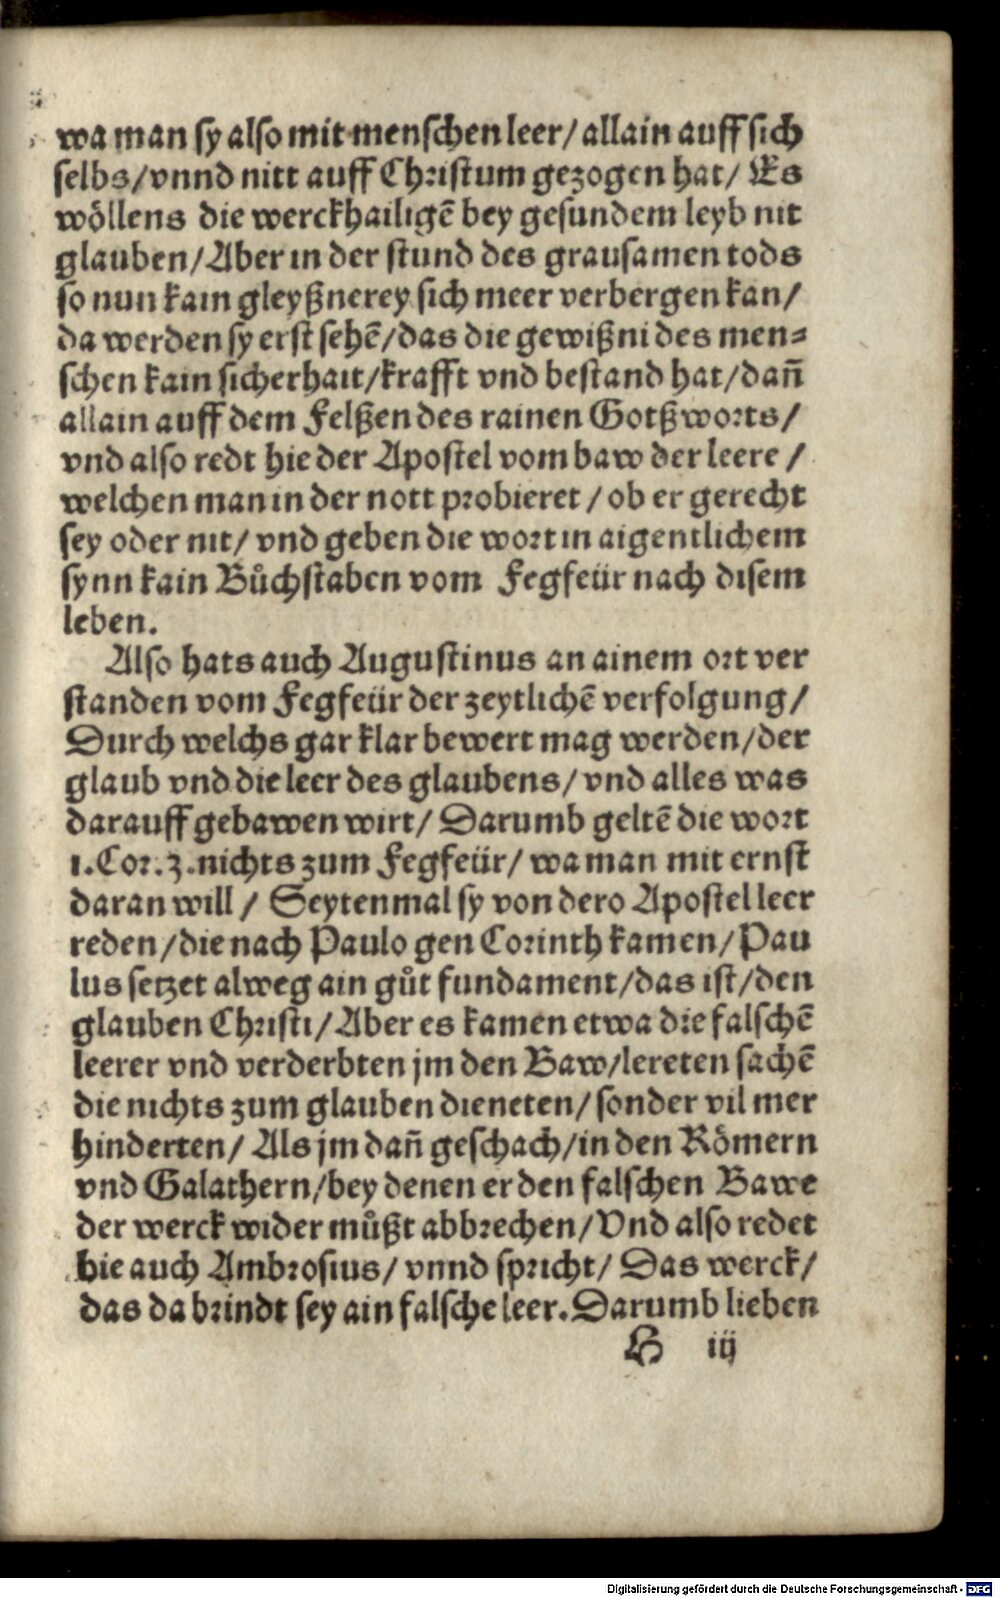 wa man sy also mit menschen leer/ allain auff sich
selbs/ vnnd nitt auff Christum gezogen hat/ Es
wöllens die werckhailigē bey gesundem leyb nit
glauben/ Aber in der stund des grausamen tods
so nun kain gleyßnerey sich meer verbergen kan/
da werden sy erst sehē/ das die gewißni des men⸗
schen kain sicherhait/ krafft vnd bestand hat/ dañ
allain auff dem Felßen des rainen Gotßworts/
vnd also redt hie der Apostel vom baw der leere /
welchen man in der nott probieret / ob er gerecht
sey oder nit/ vnd geben die wort in aigentlichem
synn kain Bůchstaben vom Fegfeür nach disem
leben.
Also hats auch Augustinus an ainem ort ver
standen vom Fegfeür der zeytlichē verfolgung/
Durch welchs gar klar bewert mag werden/ der
glaub vnd die leer des glaubens/ vnd alles was
darauff gebawen wirt/ Darumb geltē die wort
1. Cor. 3. nichts zum Fegfeür/ wa man mit ernst
daran will / Seytenmal sy von dero Apostel leer
reden/ die nach Paulo gen Corinth kamen/ Pau
lus setzet alweg ain gůt fundament/ das ist/ den
glauben Christi/ Aber es kamen etwa die falschē
leerer vnd verderbten jm den Baw/ lereten sachē
die nichts zum glauben dieneten/ sonder vil mer
hinderten/ Als jm dañ geschach/ in den Römern
vnd Galathern/ bey denen er den falschen Bawe
der werck wider můßt abbrechen/ Vnd also redet
hie auch Ambrosius/ vnnd spricht/ Das werck/
das da brindt sey ain falsche leer. Darumb lieben
B iij
Digitalisierung gefördert durch die Deutsche Forschungsgemeinschaft - DFG